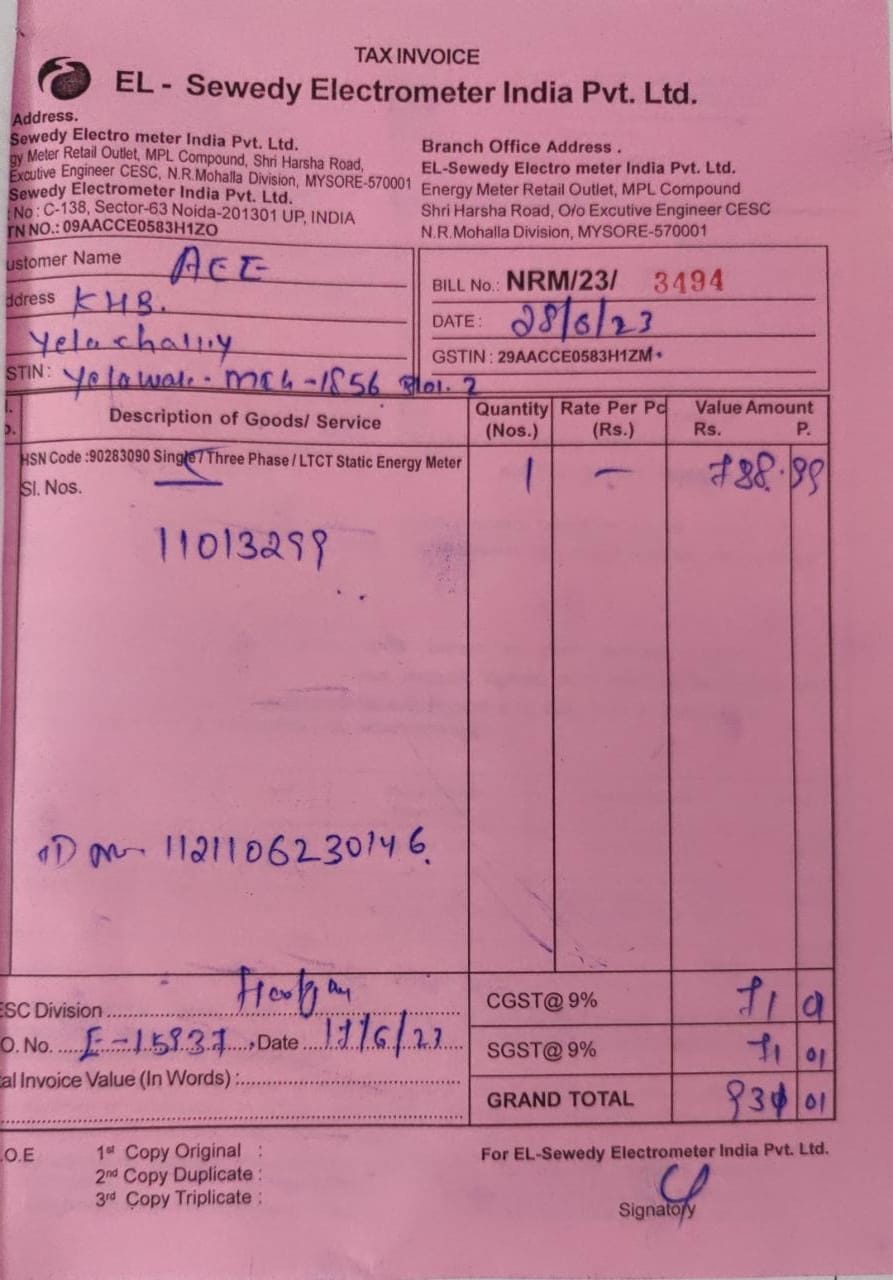 TAX INVOICE
EL - Sewedy Electrometer India Pvt. Ltd.
Address.
Sewedy Electro meter India Pvt. Ltd.
gy Meter Retail Outlet, MPL Compound, Shri Harsha Road,
Excutive Engineer CESC, N.R.Mohalla Division, MYSORE-570001
Sewedy Electrometer India Pvt. Ltd.
No : C-138, Sector-63 Noida-201301 UP, INDIA
TN NO.: 09AACCE0583H1ZO
Branch Office Address .
EL-Sewedy Electro meter India Pvt. Ltd.
Energy Meter Retail Outlet, MPL Compound
Shri Harsha Road, O/o Excutive Engineer CESC
N.R.Mohalla Division, MYSORE-570001
ustomer Name AEE
ddress KHB.
STIN:
BILL No.: NRM/23/ 3494
DATE : 28/6/23
GSTIN : 29AACCE0583H1ZM
Description of Goods/ Service
Quantity (Nos.)
Rate Per Pc (Rs.)
Value Amount Rs. P.
HSN Code :90283090 Single / Three Phase / LTCT Static Energy Meter 1 – 788.99
Sl. Nos.
11013299
1121106230146.
ESC Division
O. No. E-15937 Date 17/6/23
al Invoice Value (In Words) :
CGST@ 9% 71
SGST@ 9% 71 01
GRAND TOTAL 931 01
.O.E
1st Copy Original :
2nd Copy Duplicate :
3rd Copy Triplicate :
For EL-Sewedy Electrometer India Pvt. Ltd.
Signatory